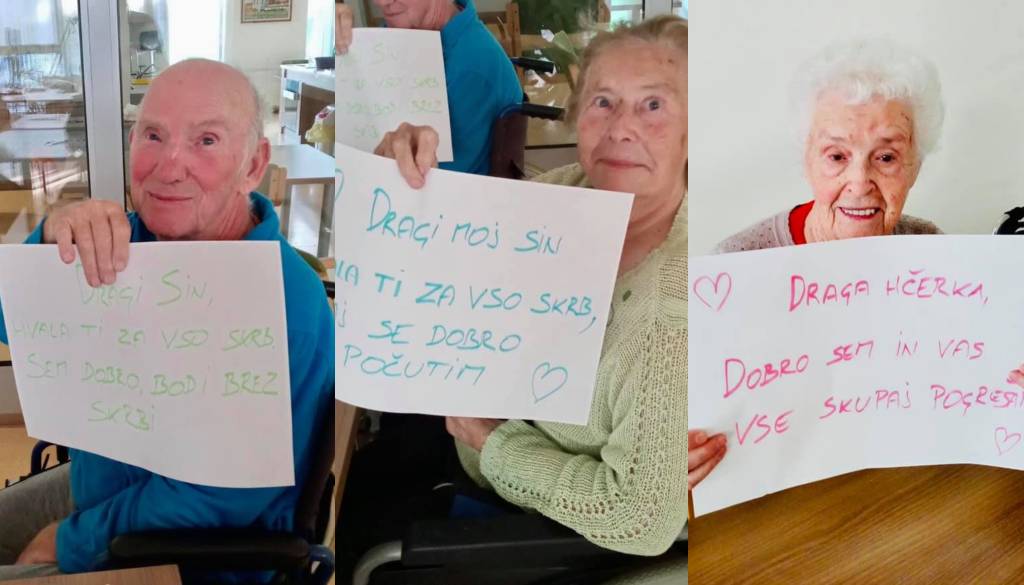 DRAGI SIN,
HVALA TI ZA VSO SKRB.
SEM DOBRO, BODI BREZ
SKRBI
SIN
TI ZA VSO SKRB
BODI BREZ
DRAGI MOJ SIN
ALA TI ZA VSO SKRB,
J SE DOBRO
POČUTIM
DRAGA HČERKA,
DOBRO SEM IN VAS
VSE SKUPAJ POGREŠA